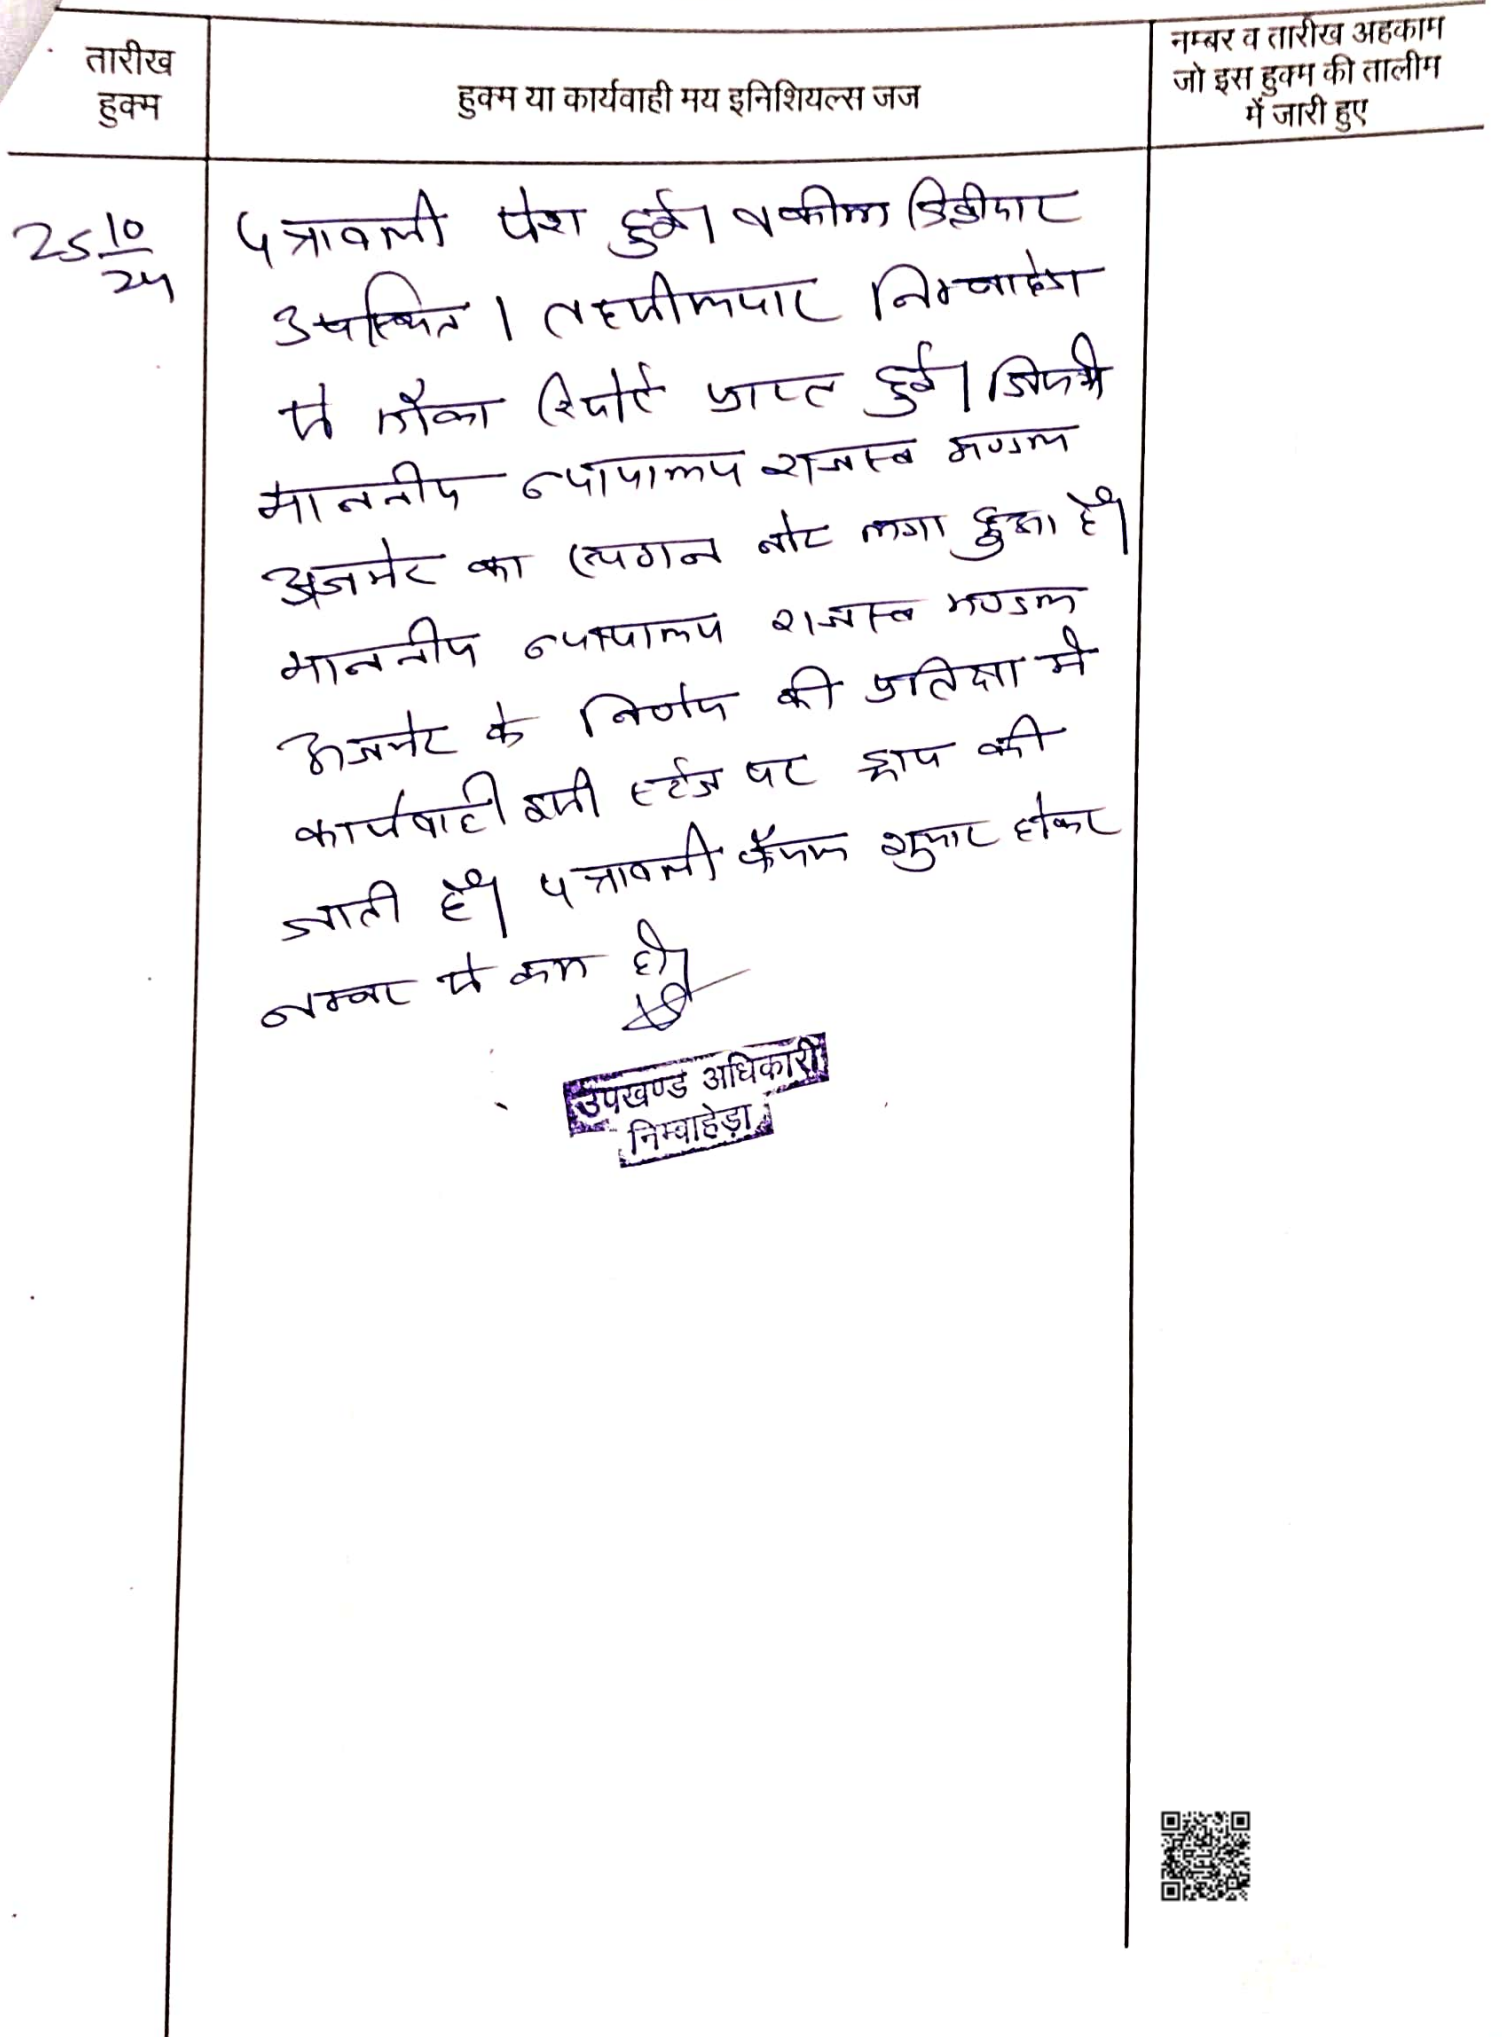 तारीख
हुक्म
हुक्म या कार्यवाही मय इनिशियल्स जज
नम्बर व तारीख अहकाम
जो इस हुक्म की तालीम
में जारी हुए
25.10
24
पत्रावली पेश हुई। वकील डिक्रीदार
उपस्थित । तहसीलदार निम्बाहेडा
से मौका रिपोर्ट प्राप्त हुई। जिसमे
माननीय न्यायालय राजस्व मण्डल
अजमेर का स्थगन नोट लगा हुआ है।
माननीय न्यायालय राजस्व मण्डल
अजमेर के निर्णय की प्रतिक्षा मे
कार्यवाही इसी स्टेज पर ड्राप की
जाती है। पत्रावली फैसल शुमार होकर
नम्बर से कम हो।
उपखण्ड अधिकारी
निम्बाहेड़ा